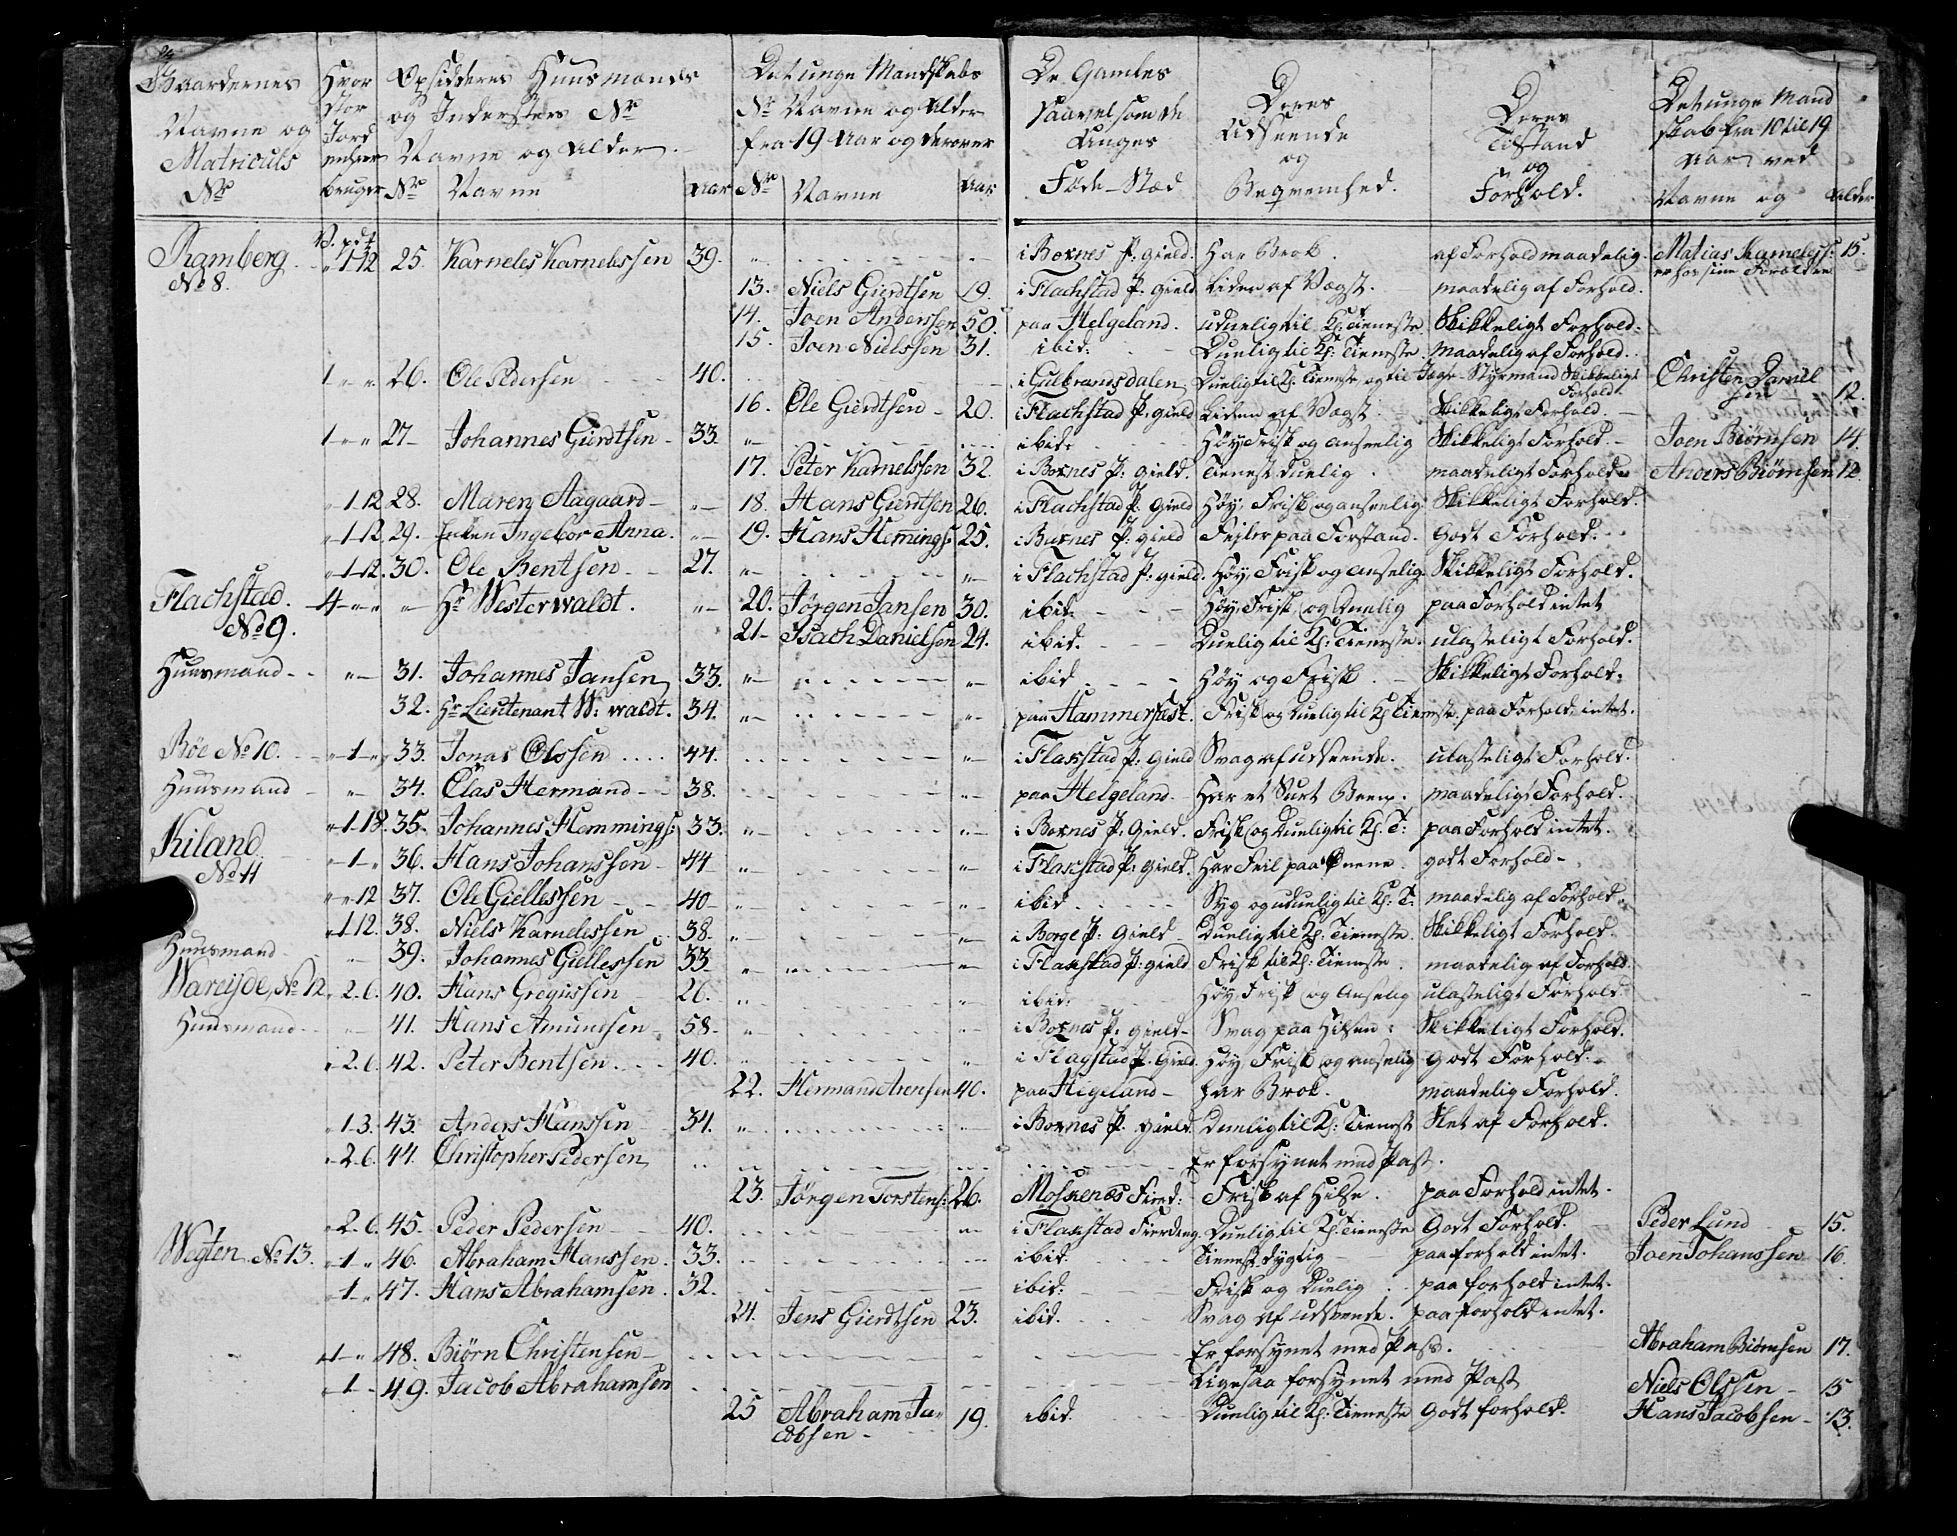 Gaardernes Hvor Opsidderes Huusmands Det unge Mandskabs De Gamles Deres Deres Det unge Mand
Navne og stor og Jndersters No No Navne og Alder saavelsom de Udseende Tilstand skab fra 10 til 19
Matriculs Jord Navne og Alder. fra 19 Aar og derover Unges og og Aar ved
No enhver bruger No Navne Aar No Navne Aar Føde-Stæd Beqvemhed. Forhold. Navne og Alder
V. pd
Ramberg "1-12 25 Karneles Karnelissen 39. i Boxnes P. Gield. Har Brok. af Forhold maadelig. Matias Karnelyss: 15.
No 8. er hos sine Forældre
13. Niels Gierdtsen 19. i Flachstad P. gield Liden af Vægst. maadelig af Forhold.
14. Joen Anderssen 50. paa Helgeland. uduelig til Kl: Tieneste Skikkeligt Forhold.
15. Joen Nielssen 31. ibid: Duelig til Kl: Tieneste. maadelig af Forhold.
1 " " 26. Ole Pedersen 40. i Gulbrandsdalen Duelig til Kl: Tieneste og til Jagt-Styrmand Skikkeligt Forhold. Christen Daniel
sen 12.
16. Ole Gierdtsen 20. i Flachstad P. gield Liden af Vægst. Skikkeligt Forhold.
1 " " 27 Johannes Gierdtsen 33. ibid: Høy Frisk og anseelig Skikkeligt Forhold. Joen Biørnsen 14.
17. Peter Karnelssen 32 i Boxnes P. gield. Tienest duelig. maadeligt Forhold Anders Biørnsen 12
" 1 12 28. Maren Aagaard 18. Hans Gierdtsen 26. i Flachstad P. gield Høy, Frisk og anseelig Skikkeligt Forhold.
" 1-12. 29. Enken Ingebor Anna. 19. Hans Hemings: 25. i Buxnes P. gield Feyler paa Forstand. Godt Forhold.
" 1-12. 30. Ole Bentsen 27. i Flachstad P. gield. Høy, Frisk og anselig Skikkeligt Forhold.
Flachstad. 4 " " Hr Westerwaldt. 20. Jørgen Jansen 30. ibid. Høy, Frisk og Duelig paa Forhold intet
No 9. 21 Isach Danielsen 24. ibid. Duelig til Kl: Tieneste. ulasteligt Forhold.
Huusmand 31. Johannes Jansen 33. ibid Høy og Frisk. Skikkeligt Forhold.
32. Hr Lieutenant W: waldt. 34. paa Hammerfæst. Frisk og Duelig til Kl Tieneste. paa Forhold intet.
Røe No 10. " 1 " 33. Jonas Olssen 44. i Flaxstad P. gield Svag af udseende. ulasteligt Forhold.
Huusmand 34. Clas Hermand 38. paa Helgeland Har et Surt Been. maadeligt Forhold.
Kiland " 1-18. 35. Johannes Hemmings: 33. i Boxnes P. Gield. Frisk og Duelig til Kl. T: paa Forhold intet.
No 11 " 1 " 36. Hans Johanssen 44 i Flaxstad P. gield. Har Feil paa Knæene. godt Forhold
" " 12 37. Ole Giellessen 40 ibid Syg og uduelig til Kl: T. maadelig af Forhold.
" 1 12. 38. Niels Karnelissen 38. i Borge P. Gield Duelig til Kl: Tieneste. Skikkeligt Forhold.
Huusmand 39. Johannes Giellessen 33 i Flaxstad P. gield Frisk til Kl: Tieneste. maadelig af Forhold.
Wareijde, No 12 " 2. 6. 40. Hans Gregussen 26. ibid: Høy, Frisk og Anselig ulasteligt Forhold.
Huusmand 41. Hans Amundsen 58 i Boxnes P. gield Svag paa Hilsen: Skikkeligt Forhold.
" 2. 6. 42. Peter Bentsen 40. i Flagstad P. Gield. Høy, Frisk og anselig Godt Forhold.
22. Hermand Arensen 40. paa Higeland har Brok. maadelig Forhold.
" 1-3. 43. Anders Hanssen 34. i Boxnes P. gield. Duelig til Kl: Tienest Slet af Forhold.
" 2 6. 44. Christopher Pedersen Er forsynet med Pass.
23. Jørgen Torstens: 26. Moskenes Fierd: Frisk af Hilse. paa Forhold intet.
" 2. 6 45. Peder Pedersen 40. i Flaxstad Fierding. Duelig til Kl Tieneste Godt Forhold. Peder Lund 15.
Wegten No 13. " 1 " 46. Abraham Hanssen. 33. ibid. Tienest dygtig paa forhold intet. Joen Johanssen 16.
" 1 " 47. Hans Abrahamsen. 32. ibid: Frisk og Duelig paa forhold intet.
24. Jens Gierdtsen 23. ibid. Svag af udseende. paa forhold intet.
" 1 " 48. Biørn Christensen Er forsynet med Pass. Abraham Biørnsen 17.
" 1 " 49. Jacob Abrahamsen Ligesaa forsynet med Pass Niels Olssen 15
25 Abraham Ja= 19. ibid. Duelig til Kl: Tieneste Godt forhold. Hans Jacobsen 13.
cobsen